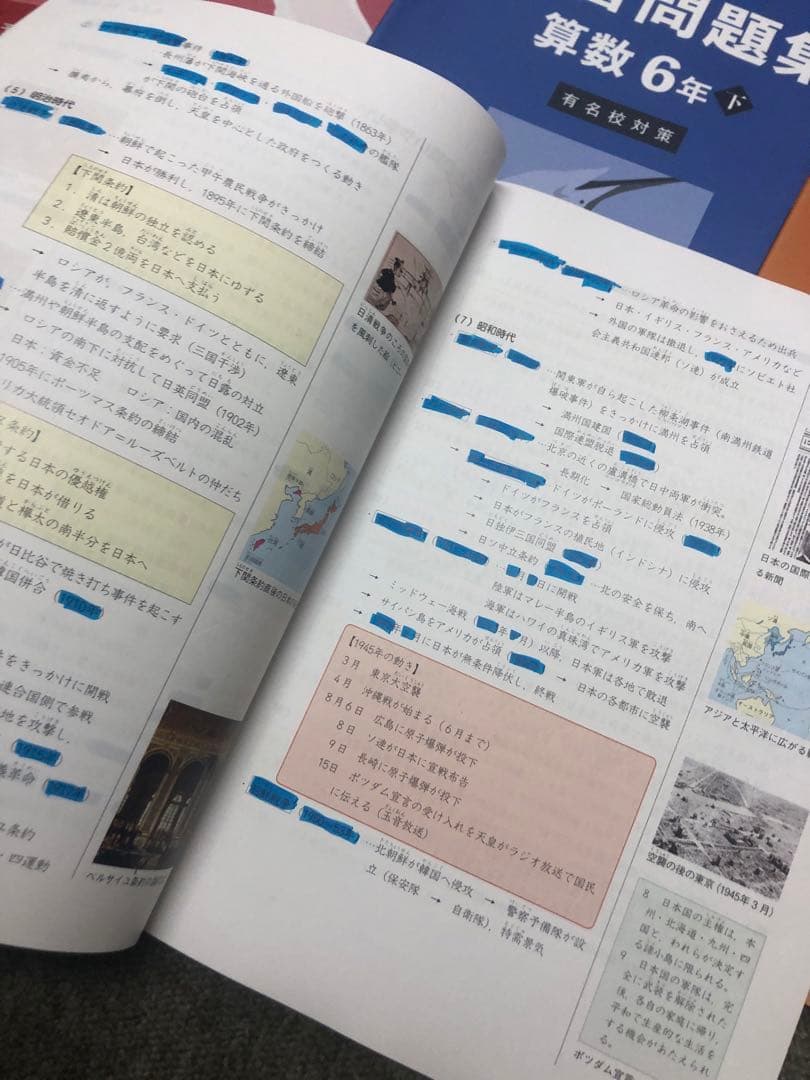 問題集
算数6年 下
有名校対策
事件
…長州藩が下関海峡を通る外国船を砲撃(1863年)
の艦隊
が下関の砲台を占領
→ 薩長から、幕府を倒し、天皇を中心とした政府をつくる動き
(5) 明治時代
…朝鮮で起こった甲午農民戦争がきっかけ
日本が勝利し、1895年に下関条約を締結
【下関条約】
1．清は朝鮮の独立を認める
2．遼東半島、台湾などを日本にゆずる
3．賠償金2億両を日本へ支払う
→ ロシアが、フランス・ドイツとともに、遼東
半島を清に返すように要求(三国干渉)
満州や朝鮮半島の支配をめぐって日露の対立
→ ロシアの南下に対抗して日英同盟(1902年)
日本・資金不足 ロシア・国内の混乱
1905年にポーツマス条約の締結
リカ大統領セオドア=ルーズベルトの仲だち
条約】
する日本の優越権
を日本が借りる
道と樺太の南半分を日本へ
が日比谷で焼き打ち事件を起こす
国併合(1910年)
をきっかけに開戦
連合国側で参戦
地を攻撃し、
義革命
条約
・四運動
日清戦争の
を風刺した絵
下関条約直後の日本の
ベルサイユ条約の
…ロシア革命の影響をおさえるため出兵
→ 日本・イギリス・フランス・アメリカなど
→ 外国の軍隊は撤退し、 にソビエト社
会主義共和国連邦(ソ連)が成立
(7) 昭和時代
…関東軍が自ら起こした柳条湖事件(南満州鉄道
爆破事件)をきっかけに満州を占領
→ 満州国建国
国際連盟脱退
…北京の近くの盧溝橋で日中両軍が衝突。
→ 長期化 → 国家総動員法(1938年)
…ドイツがポーランドに侵攻
→ ドイツがフランスを占領
→ 日本がフランスの植民地(インドシナ)に侵攻
→ 日独伊三国同盟
→ 日ソ中立条約 …北の安全を保ち、南へ
… 月 日に開戦
陸軍はマレー半島のイギリス軍を攻撃
海軍はハワイの真珠湾でアメリカ軍を攻撃
→ ミッドウェー海戦( 年 月)以降、日本軍は各地で敗退
→ サイパン島をアメリカが占領 → 日本の各都市に空襲
→ 年 月に日本が無条件降伏し、終戦
【1945年の動き】
3月 東京大空襲
4月 沖縄戦が始まる(6月まで)
8月6日 広島に原子爆弾が投下
8日 ソ連が日本に宣戦布告
9日 長崎に原子爆弾が投下
15日 ポツダム宣言の受け入れを天皇がラジオ放送で国民
に伝える(玉音放送)
…北朝鮮が韓国へ侵攻 → 警察予備隊が設
立(保安隊 → 自衛隊)、特需景気
日本の国際
る新聞
アジアと太平洋に広がる戦
空襲の後の東京(1945年3月)
8 日本国の主権は、本
州・北海道・九州・四
国と、われらが決定す
る諸小島に限られる。
9 日本国の軍隊は、完
全に武装を解除された
後、各自の家庭に帰り、
平和で生産的な生活を
する機会があたえられ
る。
ポツダム宣言